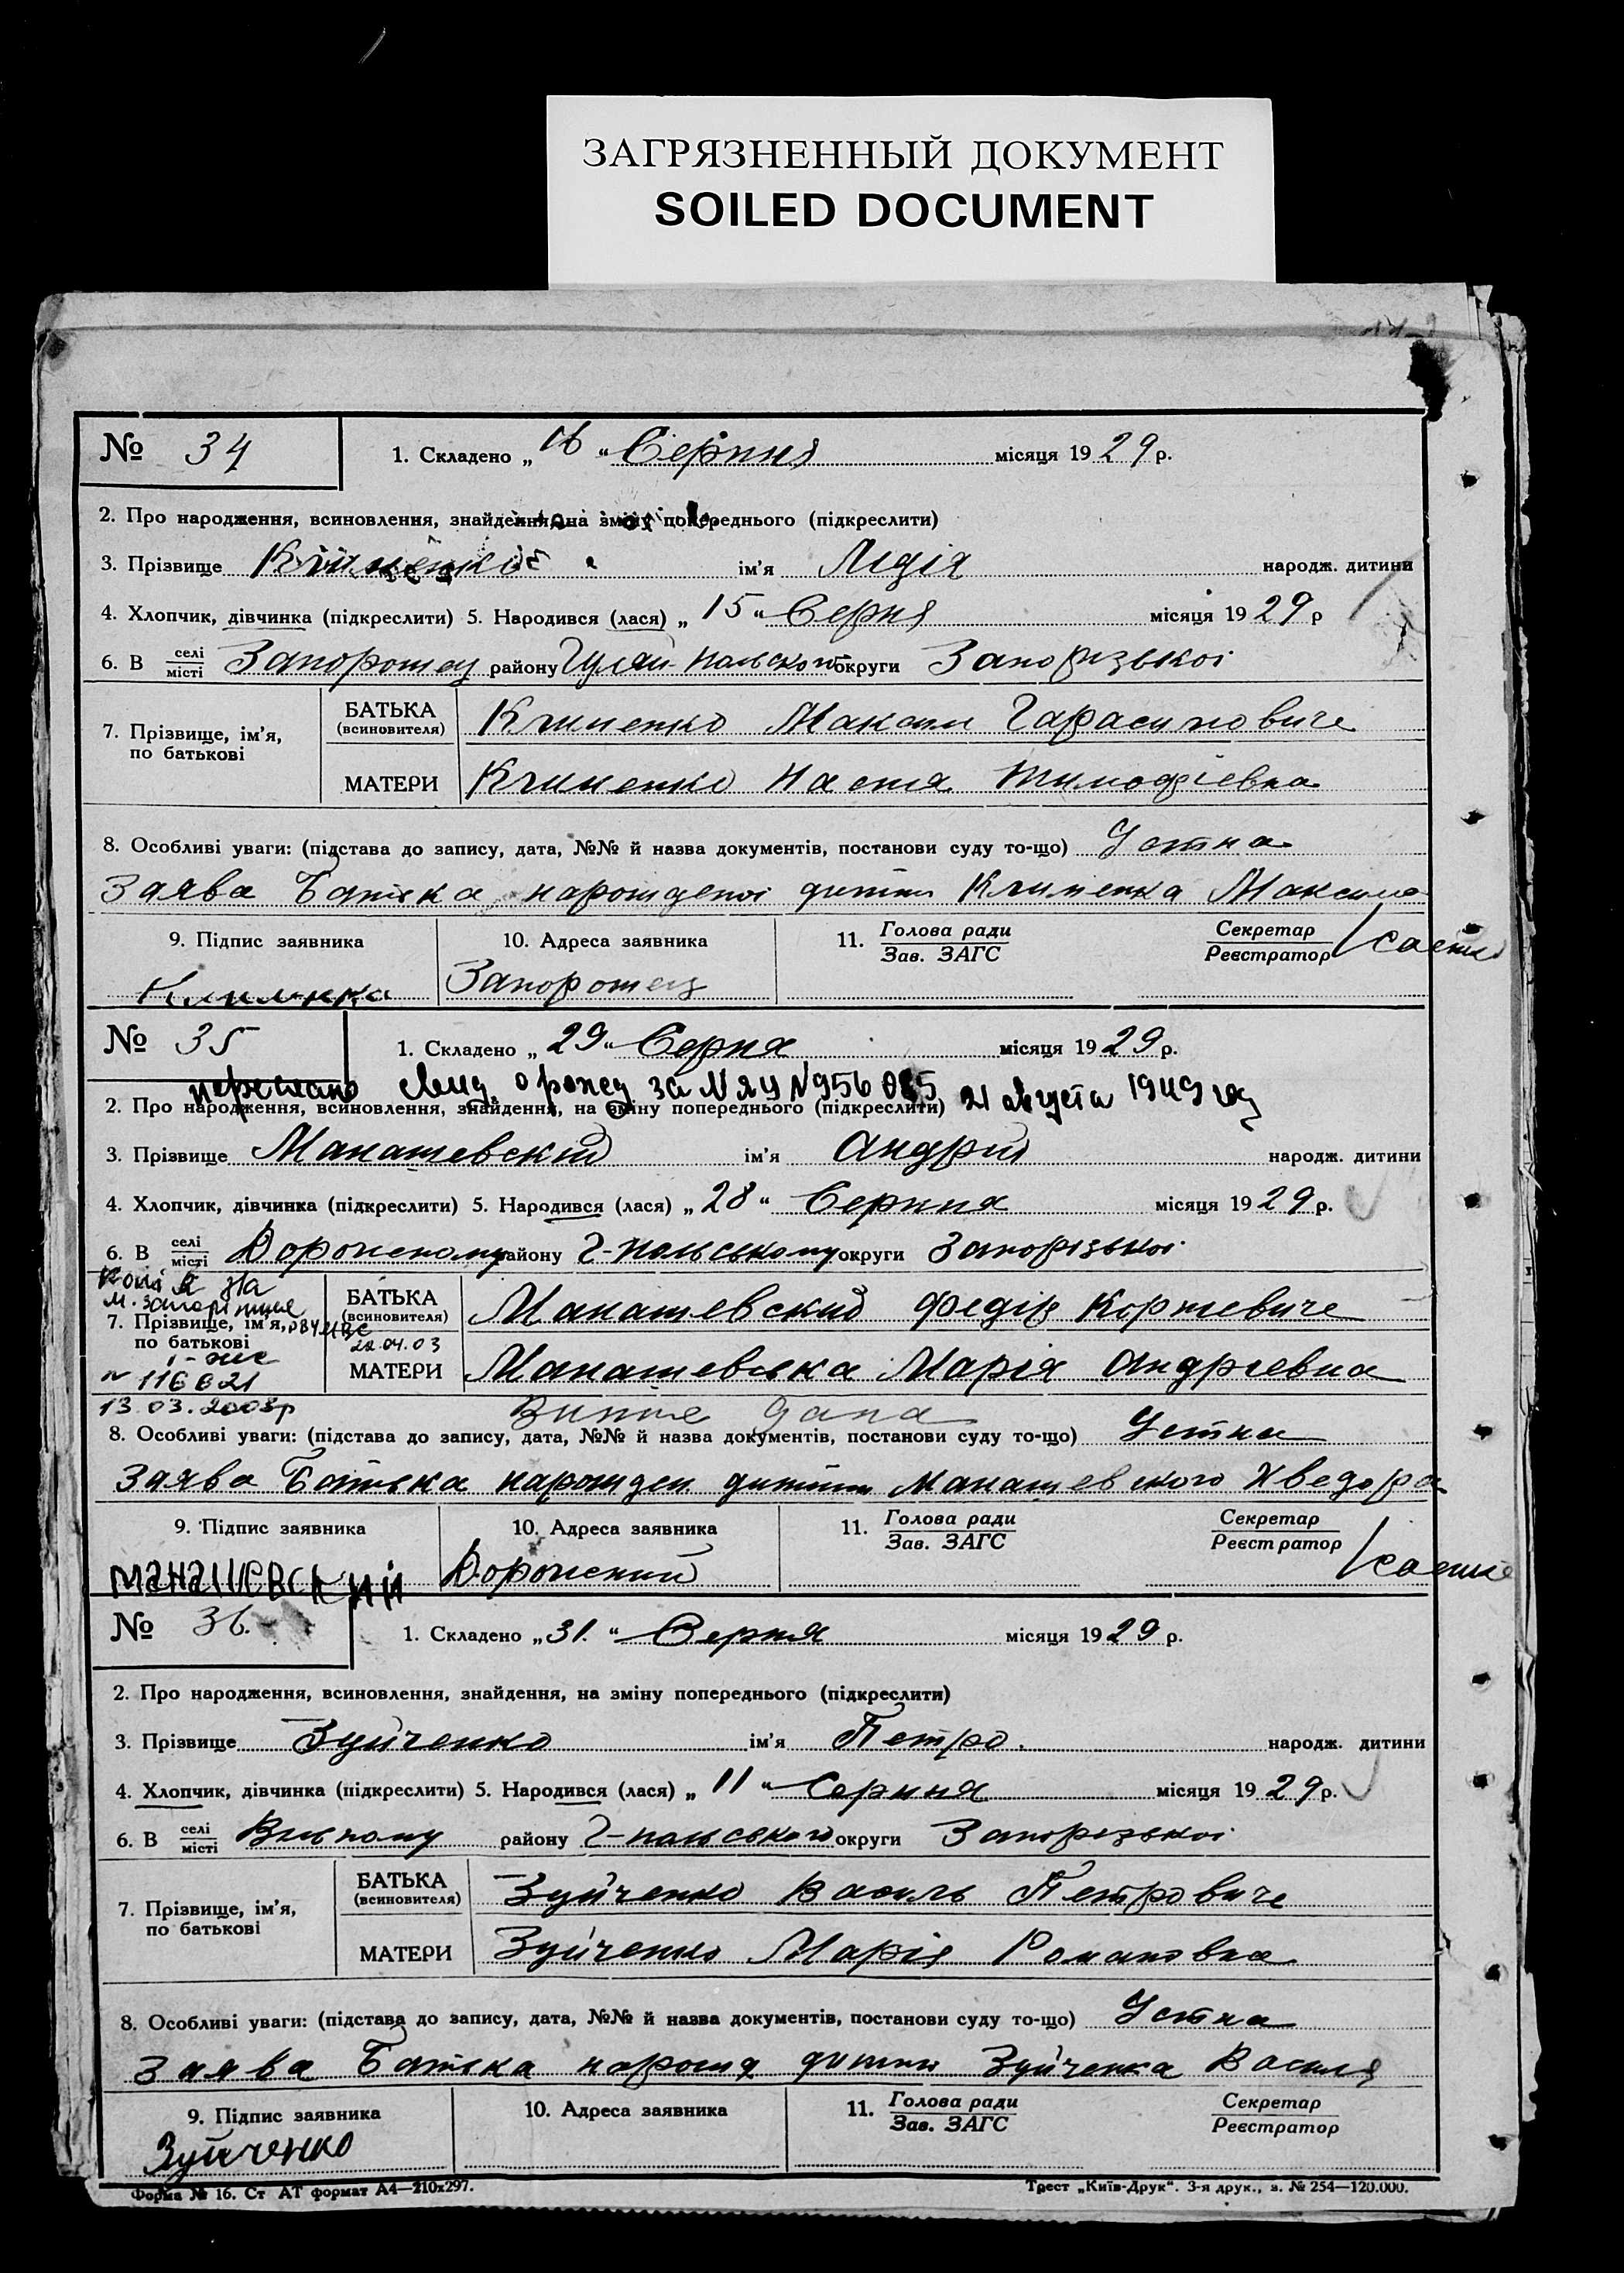 ЗАГРЯЗНЕННЫЙ ДОКУМЕНТ
SOILED DOCUMENT
№ 34 1. Складено „16“ Серпня місяця 1929 р.
2. Про народження, всиновлення, знайдення, на зміну попереднього (підкреслити)
3. Прізвище ім'я Лідія народж. дитини
4. Хлопчик, дівчинка (підкреслити) 5. Народився (лася) „15“ Серпя місяця 1929 р
6. В селі місті Запорожец району Гуляй-Польского округи Запоризькоі
7. Прізвище, ім'я, по батькові
БАТЬКА (всиновителя) Клименко Максим Гарасимовиче
МАТЕРИ Клименко Настя Тимофієвна
8. Особливі уваги: (підстава до запису, дата, №№ й назва документів, постанови суду то-що) Устна
Заява Батька нарожденоі дитини Клименка Максима
9. Підпис заявника 10. Адреса заявника 11. Голова ради Зав. ЗАГС Секретар Реєстратор
Клименка Запорожец
№ 35 1. Складено „29“ Серпя місяця 1929 р.
за № ЯЦ №956085 21 августа 1949 год
2. Про народження, всиновлення, знайдення, на зміну попереднього (підкреслити)
3. Прізвище Манашевский ім'я Андрий народж. дитини
4. Хлопчик, дівчинка (підкреслити) 5. Народився (лася) „28“ Серпня місяця 1929 р.
6. В селі місті району Г-Польському округи Запорізькоі
Копія на
м. Запоріжжя
7. Прізвище, ім'я, по батькові
22.04.03
№ 116621
13.03.2003р
БАТЬКА (всиновителя) Манашевский Федір Корниевиче
МАТЕРИ Манашевська Марія Андріевна
8. Особливі уваги: (підстава до запису, дата, №№ й назва документів, постанови суду то-що) Устна
Заява Батька нарожден дитини Манашевского Хведора
9. Підпис заявника 10. Адреса заявника 11. Голова ради Зав. ЗАГС Секретар Реєстратор
манашевский
№ 36. 1. Складено „31.“ Серпя місяця 1929 р.
2. Про народження, всиновлення, знайдення, на зміну попереднього (підкреслити)
3. Прізвище Зуйченко ім'я Петро. народж. дитини
4. Хлопчик, дівчинка (підкреслити) 5. Народився (лася) „11“ Серпня місяця 1929 р.
6. В селі місті Вильному району Г-польського округи Запорізькоі
7. Прізвище, ім'я, по батькові
БАТЬКА (всиновителя) Зуйченко Василь Петровиче
МАТЕРИ Зуйченко Марія Романовна
8. Особливі уваги: (підстава до запису, дата, №№ й назва документів, постанови суду то-що) Устна
Заява Батька нарожд дитини Зуйченка Василя
9. Підпис заявника 10. Адреса заявника 11. Голова ради Зав. ЗАГС Секретар Реєстратор
Зуйченко
Форма № 16. Ст АТ формат А4—210х297. Трест „Київ-Друк“. 3-я друк., з. № 254—120.000.